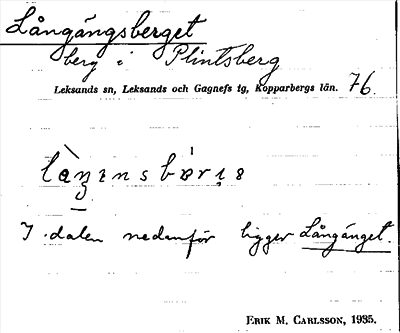 Långängsberget
berg i Plintsberg
Leksands sn, Leksands och Gagnefs tg, Kopparbergs län. 76.
I dalen nedanför ligger Långänget.
ERIK M. CARLSSON, 1935.